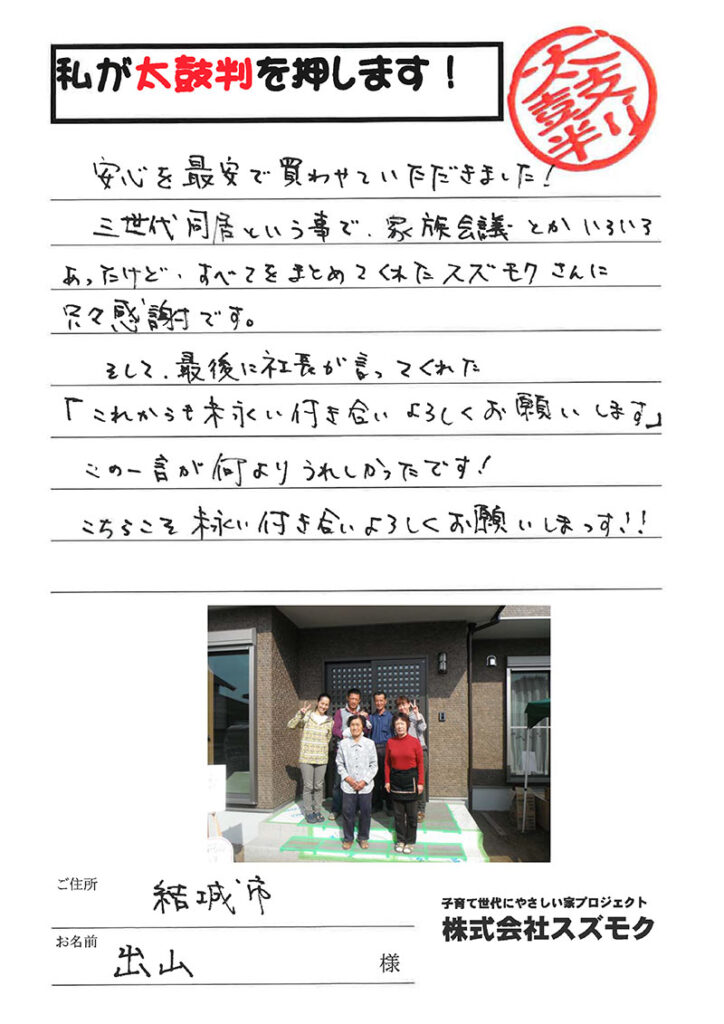 私が太鼓判を押します！
太鼓判
安心を最安で買わせていただきました！
三世代同居という事で、家族会議とかいろいろ
あったけど、すべてをまとめてくれたスズモクさんに
只々感謝です。
そして、最後に社長が言ってくれた
「これからも末永い付き合いよろしくお願いします」
この一言が何よりうれしかったです！
こちらこそ末永い付き合いよろしくお願いしまっす!!
ご住所 結城市
お名前 出山 様
子育て世代にやさしい家プロジェクト
株式会社スズモク